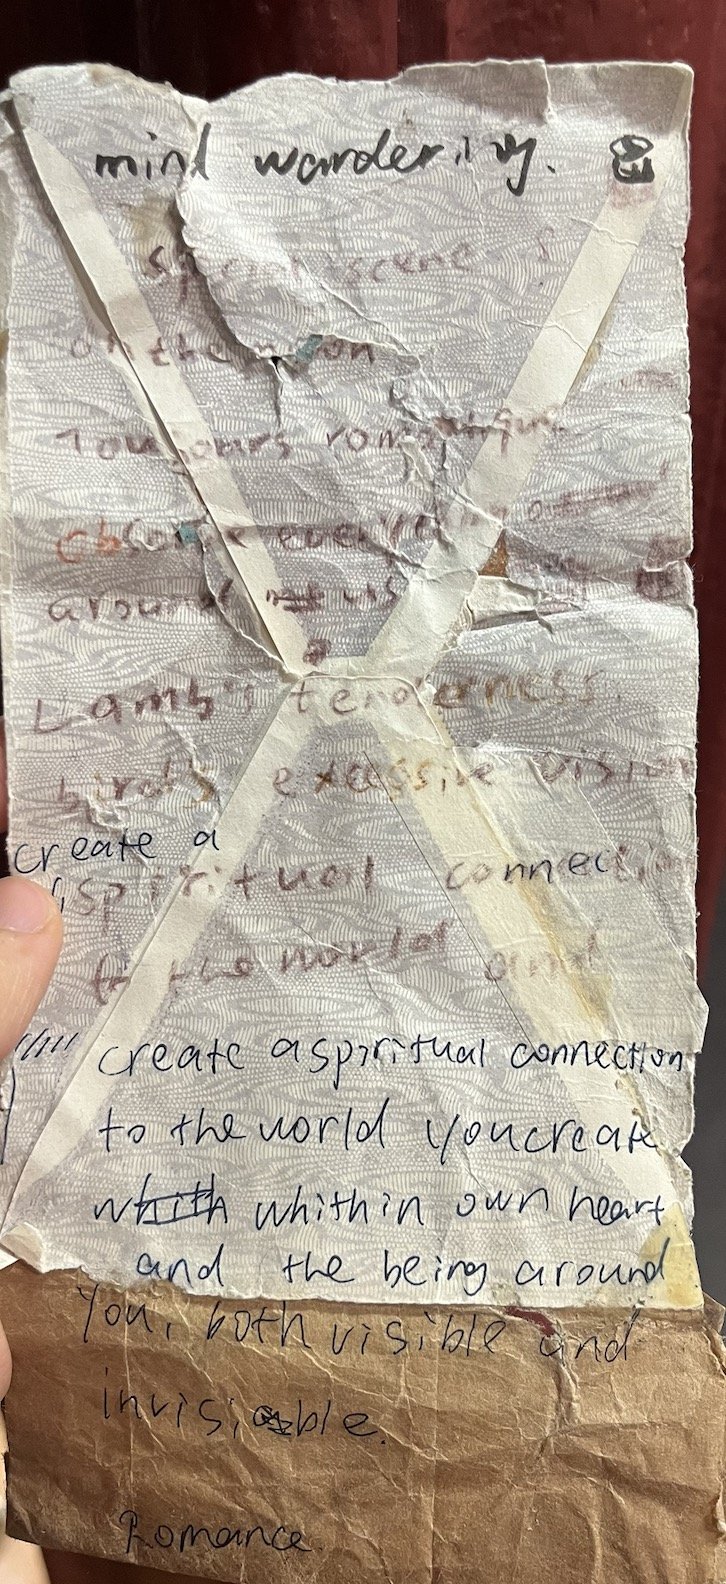 mind wandering.
scene
on the moon
Toujours romantique
observe everything
around us
Lamb's tenderness
bird's excessive vision
create a
spiritual connection
to the world and
create a spiritual connection
to the world you create
whithin own heart
and the being around
You, both visible and
invisible.
Romance.